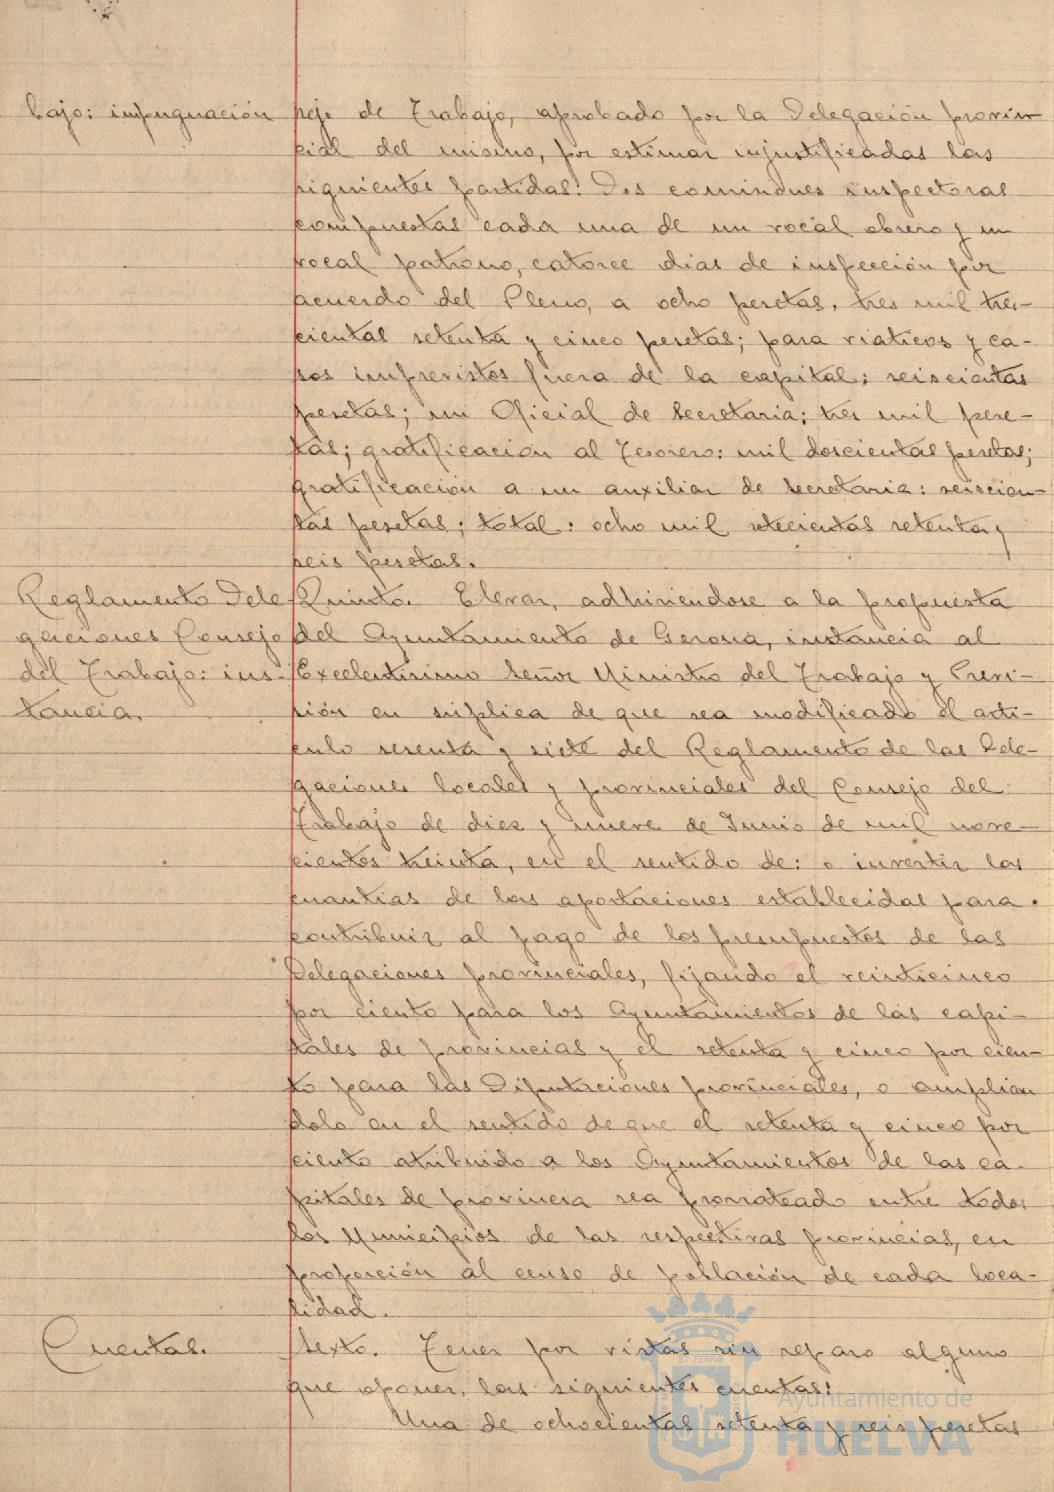 bajo: impugnación
sejo de Trabajo, aprobado por la Delegación provin
cial del mismo, por estimar injustificadas las
siguientes partidas: Dos comisiones inspectoras
compuestas cada una de un vocal obrero y un
vocal patrono, catorce dias de inspección por
acuerdo del Pleno, a ocho pesetas, tres mil tres-
cientas setenta y cinco pesetas; para viaticos y ca-
sos imprevistos fuera de la capital; seiscientas
pesetas; un Oficial de Secretaria; tres mil pese-
tas; gratificación al Tesorero: mil doscientas pesetas;
gratificación a un auxiliar de Secretaria: seiscien-
tas pesetas; total: ocho mil setecientas setenta y
seis pesetas.
Reglamento Dele
gaciones Consejo
del Trabajo: ins-
tancia.
Quinto. Elevar, adhiriendose a la propuesta
del Ayuntamiento de Gerona, instancia al
Excelentisimo Señor Ministro del Trabajo y Previ-
sión en súplica de que sea modificado el arti-
culo sesenta y siete del Reglamento de las Dele-
gaciones locales y provinciales del Consejo del
Trabajo de diez y nueve de Junio de mil nove-
cientos treinta, en el sentido de: o invertir las
cuantias de las aportaciones establecidas para
contribuir al pago de los presupuestos de las
Delegaciones provinciales, fijando el veinticinco
por ciento para los Ayuntamientos de las capi-
tales de provincias y el setenta y cinco por cien-
to para las Diputaciones provinciales, o amplian
dolo en el sentido de que el setenta y cinco por
ciento atribuido a los Ayuntamientos de las ca-
pitales de provincia sea prorrateado entre todos
los Municipios de las respectivas provincias, en
proporción al censo de población de cada loca-
lidad.
Cuentas.
Sexto. Tener por vistas sin reparo alguno
que oponer, las siguientes cuentas:
Una de ochocientas setenta y seis pesetas
Ayuntamiento de
HUELVA